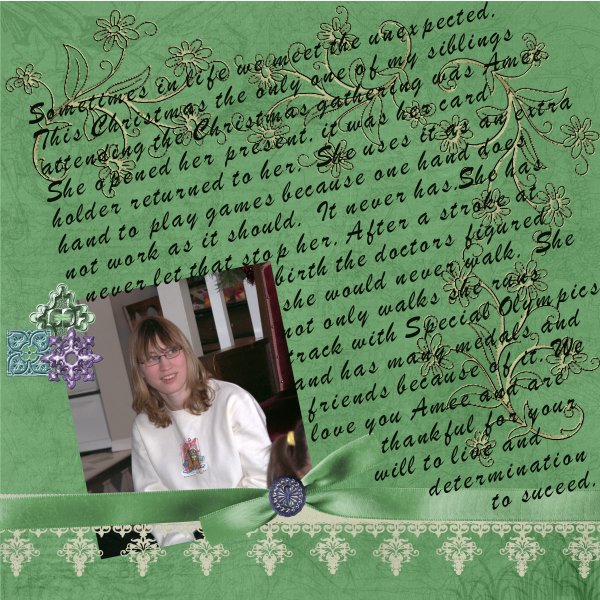 Sometimes in life we meet the unexpected.
This Christmas the only one of my siblings
attending the Christmas gathering was Amee
She opened her present, it was her card
holder returned to her. She uses it as an extra
hand to play games because one hand does
not work as it should. It never has. She has
never let that stop her. After a stroke at
birth the doctors figured
she would never walk. She
not only walks she runs
track with Special Olympics
and has many medals and
friends because of it. We
love you Amee and are
thankful for your
will to live and
determination
to suceed.